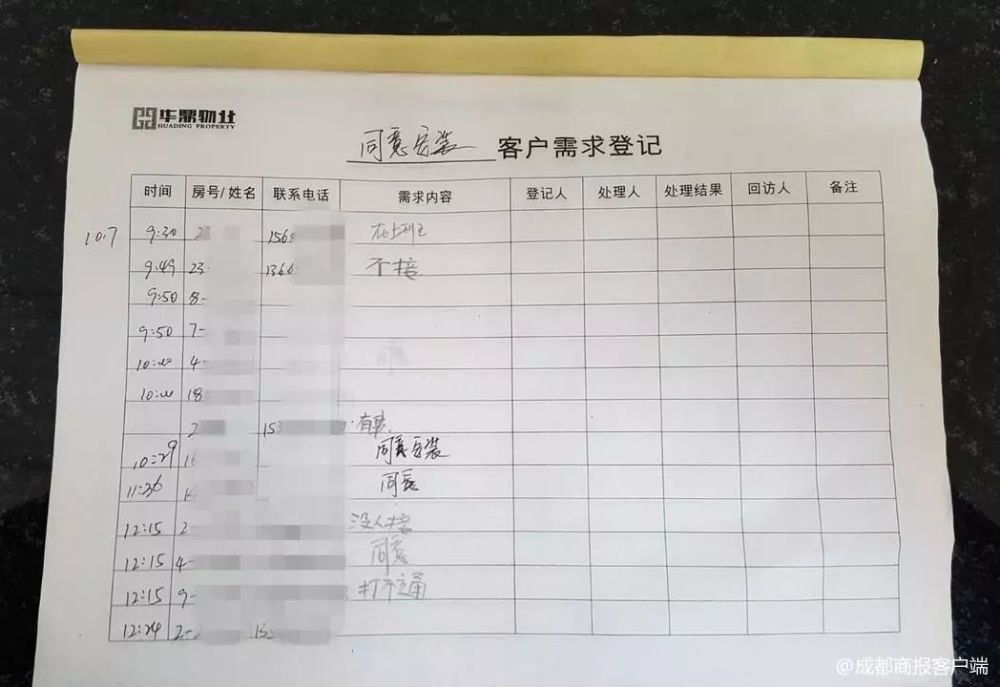 华鼎物业
HUADING PROPERTY
同意安装 客户需求登记
时间 房号/姓名 联系电话 需求内容 登记人 处理人 处理结果 回访人 备注
10.7 9:30 2 156 在上班
9:49 23 1366 不接
9:50 8-
9:50 7-
10:00 4- 同意
10:00 18
2 15
10:29 16 同意安装
11:36 1 同意
12:15 2- 没人接
12:15 4- 同意
12:15 9- 打不通
12:24 2- 13
@成都商报客户端